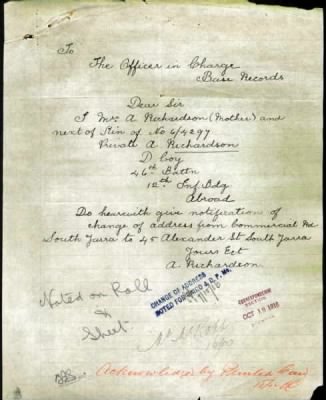 To
The Officer in Charge
Base Records
Dear Sir
I Mrs A Richardson (Mother) and
next of Kin of No 6/4297
Private A. Richardson
D Coy
46th Battn
12th Inf Bdg
Abroad
Do herewith give notification of
change of address from Commercial Rd
South Yarra to 45 Alexander St South Yarra
Yours Ect
A. Richardson
Noted on Roll
&
Sheet
CHANGE OF ADDRESS
NOTED FOR
CORRESPONDENCE
SECTION
OCT 18 1916
Acknowledge by